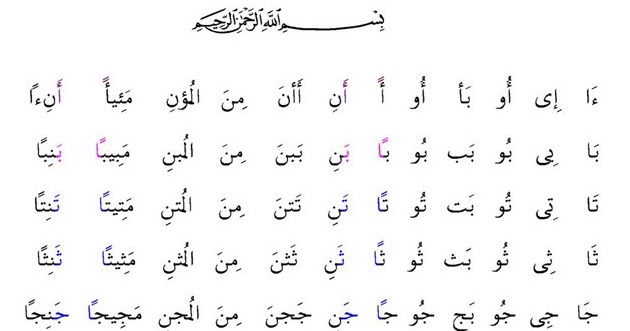 بِسْمِ اللَّهِ الرَّحْمَٰنِ الرَّحِيمِ
ءَا إِى أُو بَأ أُو أً أَنِ أَأنَ مِنَ الْمُؤنِ مَئِيأً أَنِءًا
بَا بِى بُو بَب بُو بًا بَنِ بَبنَ مِنَ الْمُبنِ مَبِيبًا بَنِبًا
تَا تِى تُو بَت تُو تًا تَنِ تَتنَ مِنَ الْمُتنِ مَتِيتًا تَنِتًا
ثَا ثِى ثُو بَث ثُو ثًا ثَنِ ثَثنَ مِنَ الْمُثنِ مَثِيثًا ثَنِثًا
جَا جِى جُو بَج جُو جًا جَنِ جَجنَ مِنَ الْمُجنِ مَجِيجًا جَنِجًا